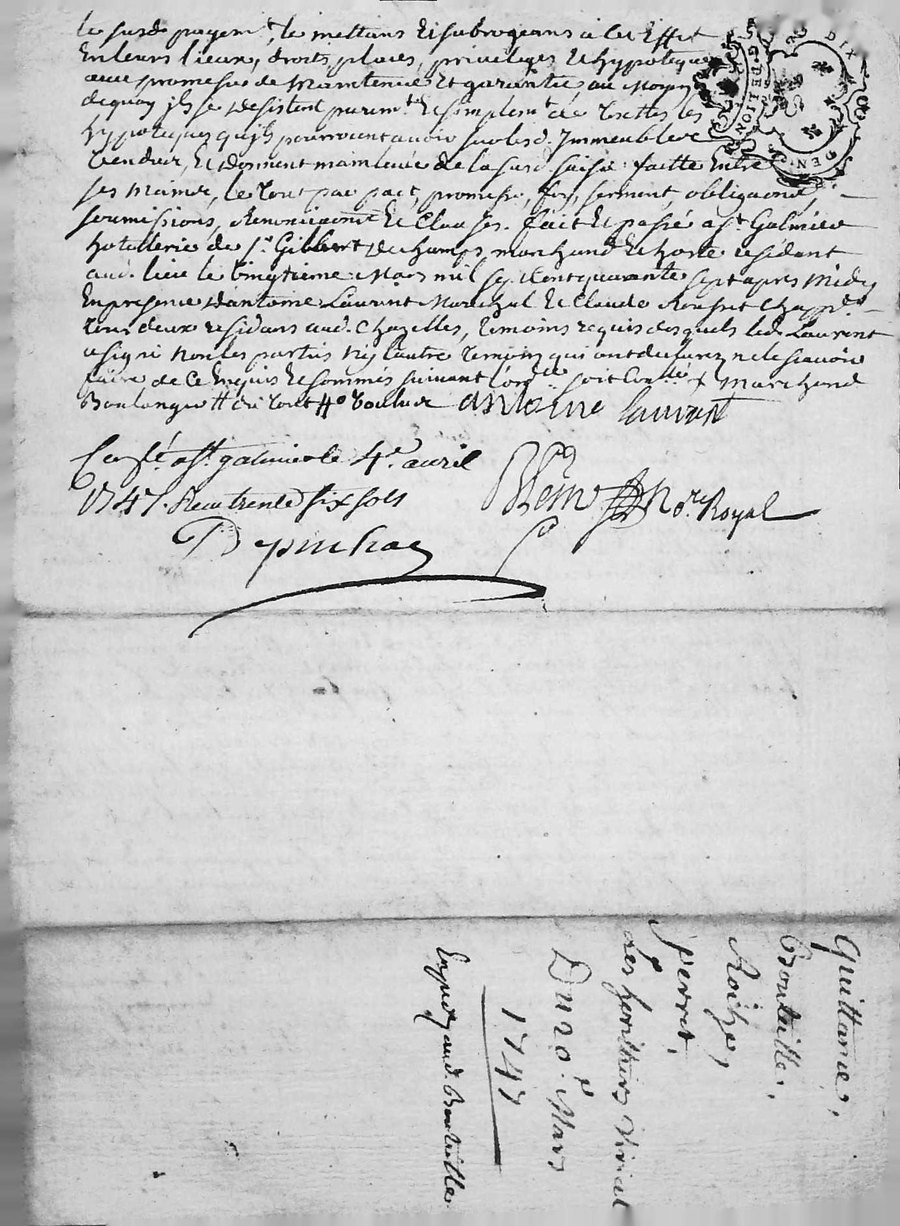 le susd. payem.t, le mettans et subrogeans a cet effet
En leurs lieux, droits, places, privileges et hypoteques
avec promesse de maintenue et garantie, au moyen
dequoy ils se desistent purem.t et simplem.t de touttes les
hypoteques qu'ils pourroient avoir sur lesd. Immeubles
vendus, et donnent mainlevée de la susd. saisie faitte entre
ses mains, le tout par pact, promesse, foy, serment, obligaons,
soumissions, renonciaons et clauses. fait et passé a S.t Galmier
hotellerie de S.r Gilbert Dechamps marchand et hoste residant
aud. lieu le vingtieme Mars mil sept cent quarante sept apres midy
En presence d'antoine Laurent Marechal et Claude
tous deux residans aud. Chazelles, temoins requis desquels led. Laurent
a signé non les parties ny l'autre temoin qui ont declaré ne le sçavoir
faire de ce enquis et sommés suivant l'ord.ce soit Con.llé Marchand
Boulanger # du tout #
antoine laurent
Con.lé a S.t galmier le 4.e avril
1747. Reçu trente six sols
N.re Royal
G. DE LION
DIX
GENE
Quittance,
Bouteille,
Perret,
Les heritiers
Du 20.e Mars
1747
Expedy aud. Bouteille